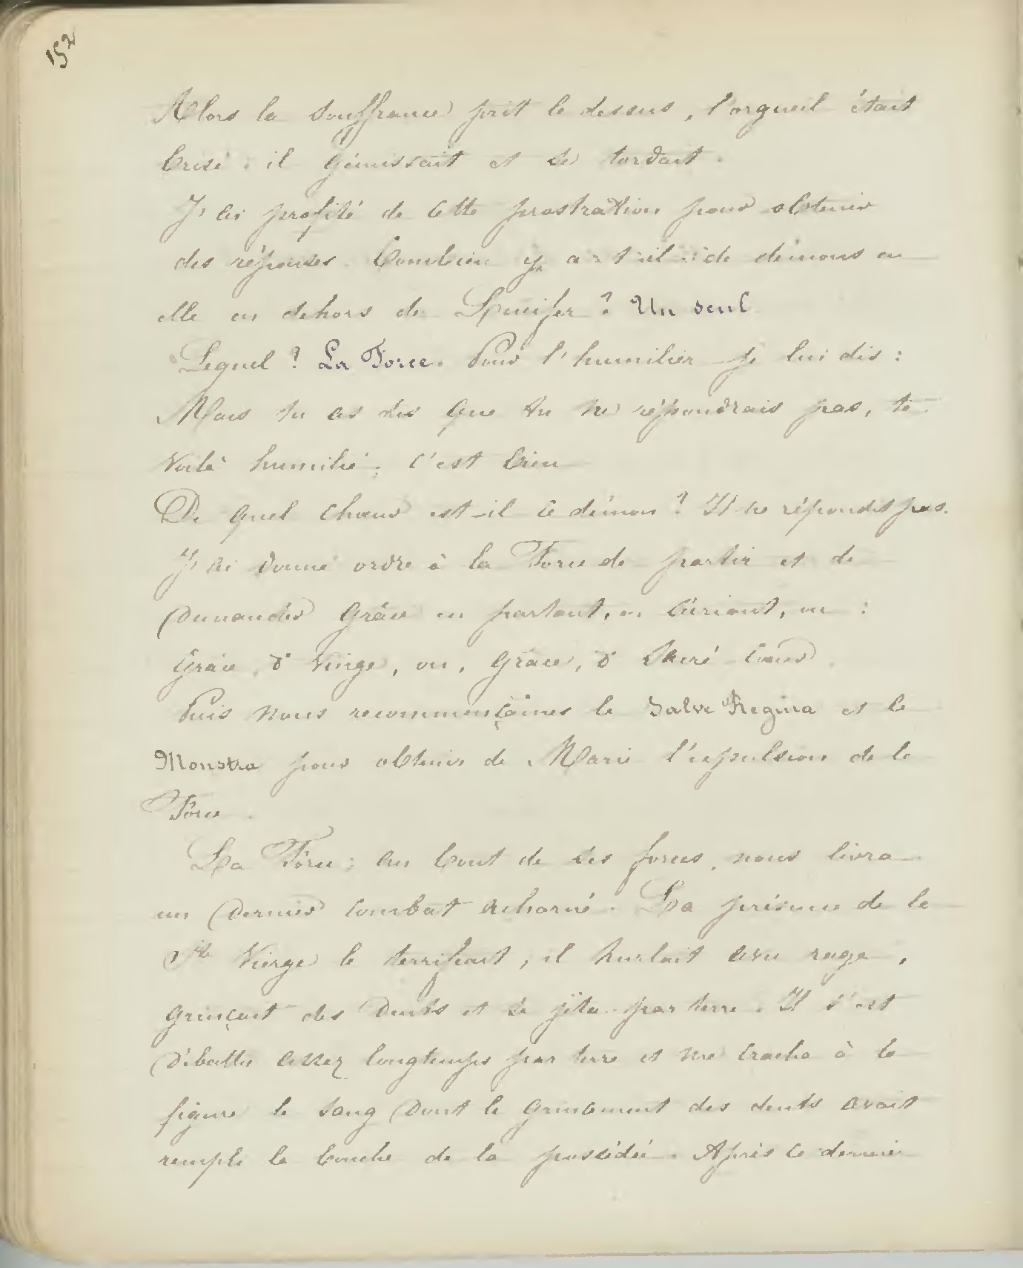 152
Alors la souffrance prit le dessus, l'orgueil était
brisé : il gémissait et se tordait.
J'ai profité de cette prostration pour obtenir
des réponses. Combien y a-t-il de démons en
elle en dehors de Lucifer ? Un seul
Lequel ? La Force. Pour l'humilier je lui dis :
Mais tu as dis que tu ne répondrais pas, te
voilà humilié, c'est bien
De quel choeur est-il ce démon ? Il ne répondit pas.
J'ai donné ordre à la Force de partir et de
demander grâce en partant, en criant, ou :
Grâce, ô Vierge, ou, Grâce, ô Sacré Coeur.
Puis nous recommençâmes le Salve Regina et le
Monstra pour obtenir de Marie l'expulsion de la
Force.
La Force, au bout de ses forces, nous livra
un dernier combat acharné. La présence de la
Ste Vierge le terrifiait ; il hurlait avec rage,
grinçait des dents et se jeta par terre. Il s'est
débattu assez longtemps par terre et me cracha à la
figure le sang dont le grincement des dents avait
rempli la bouche de la possédée. Après ce dernier